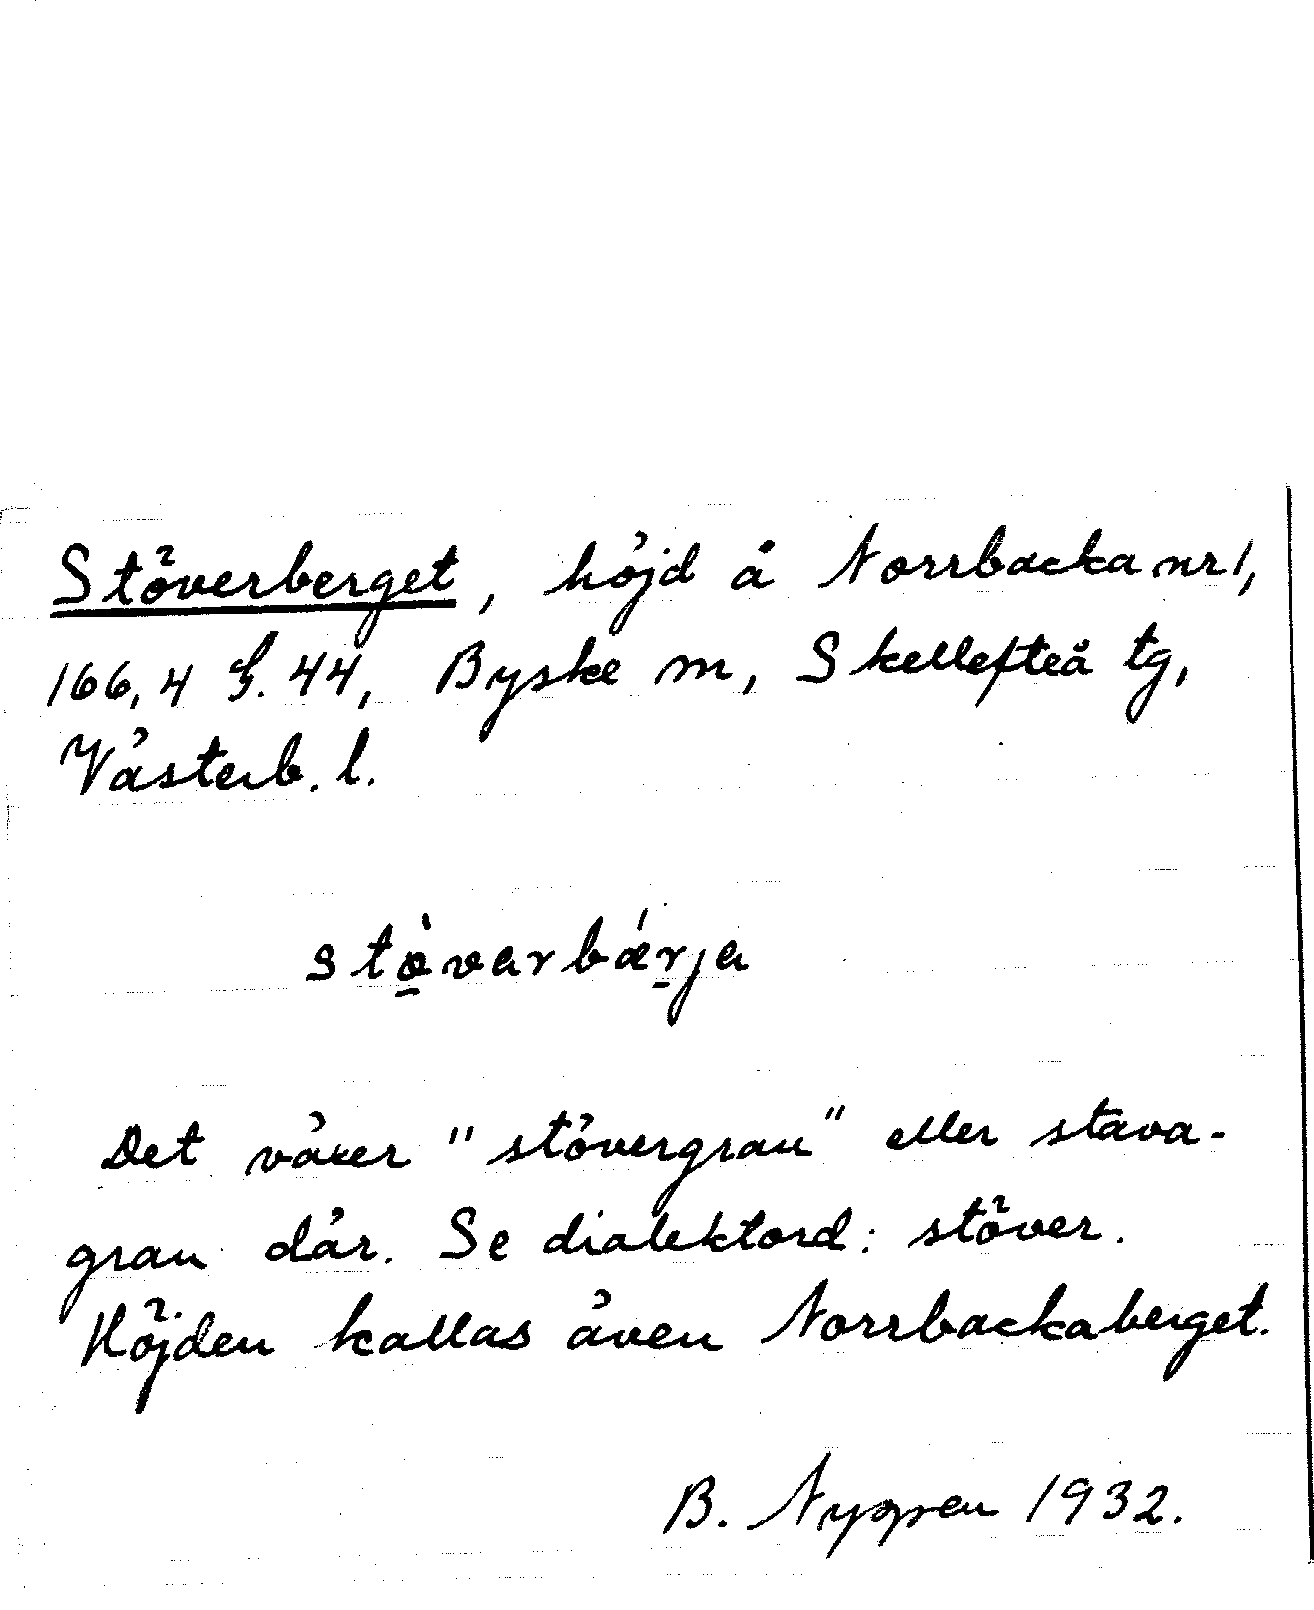 Stöverberget, höjd å Norrbacka nr 1,
166,4 S. 44, Byske sn, Skellefteå tg,
Västerb. l.
stǿ̱varbǽṟja
Det växer "stövergran" eller stava-
gran där. Se dialektord: stöver.
Höjden kallas även Norrbackaberget.
B. Nygren 1932.